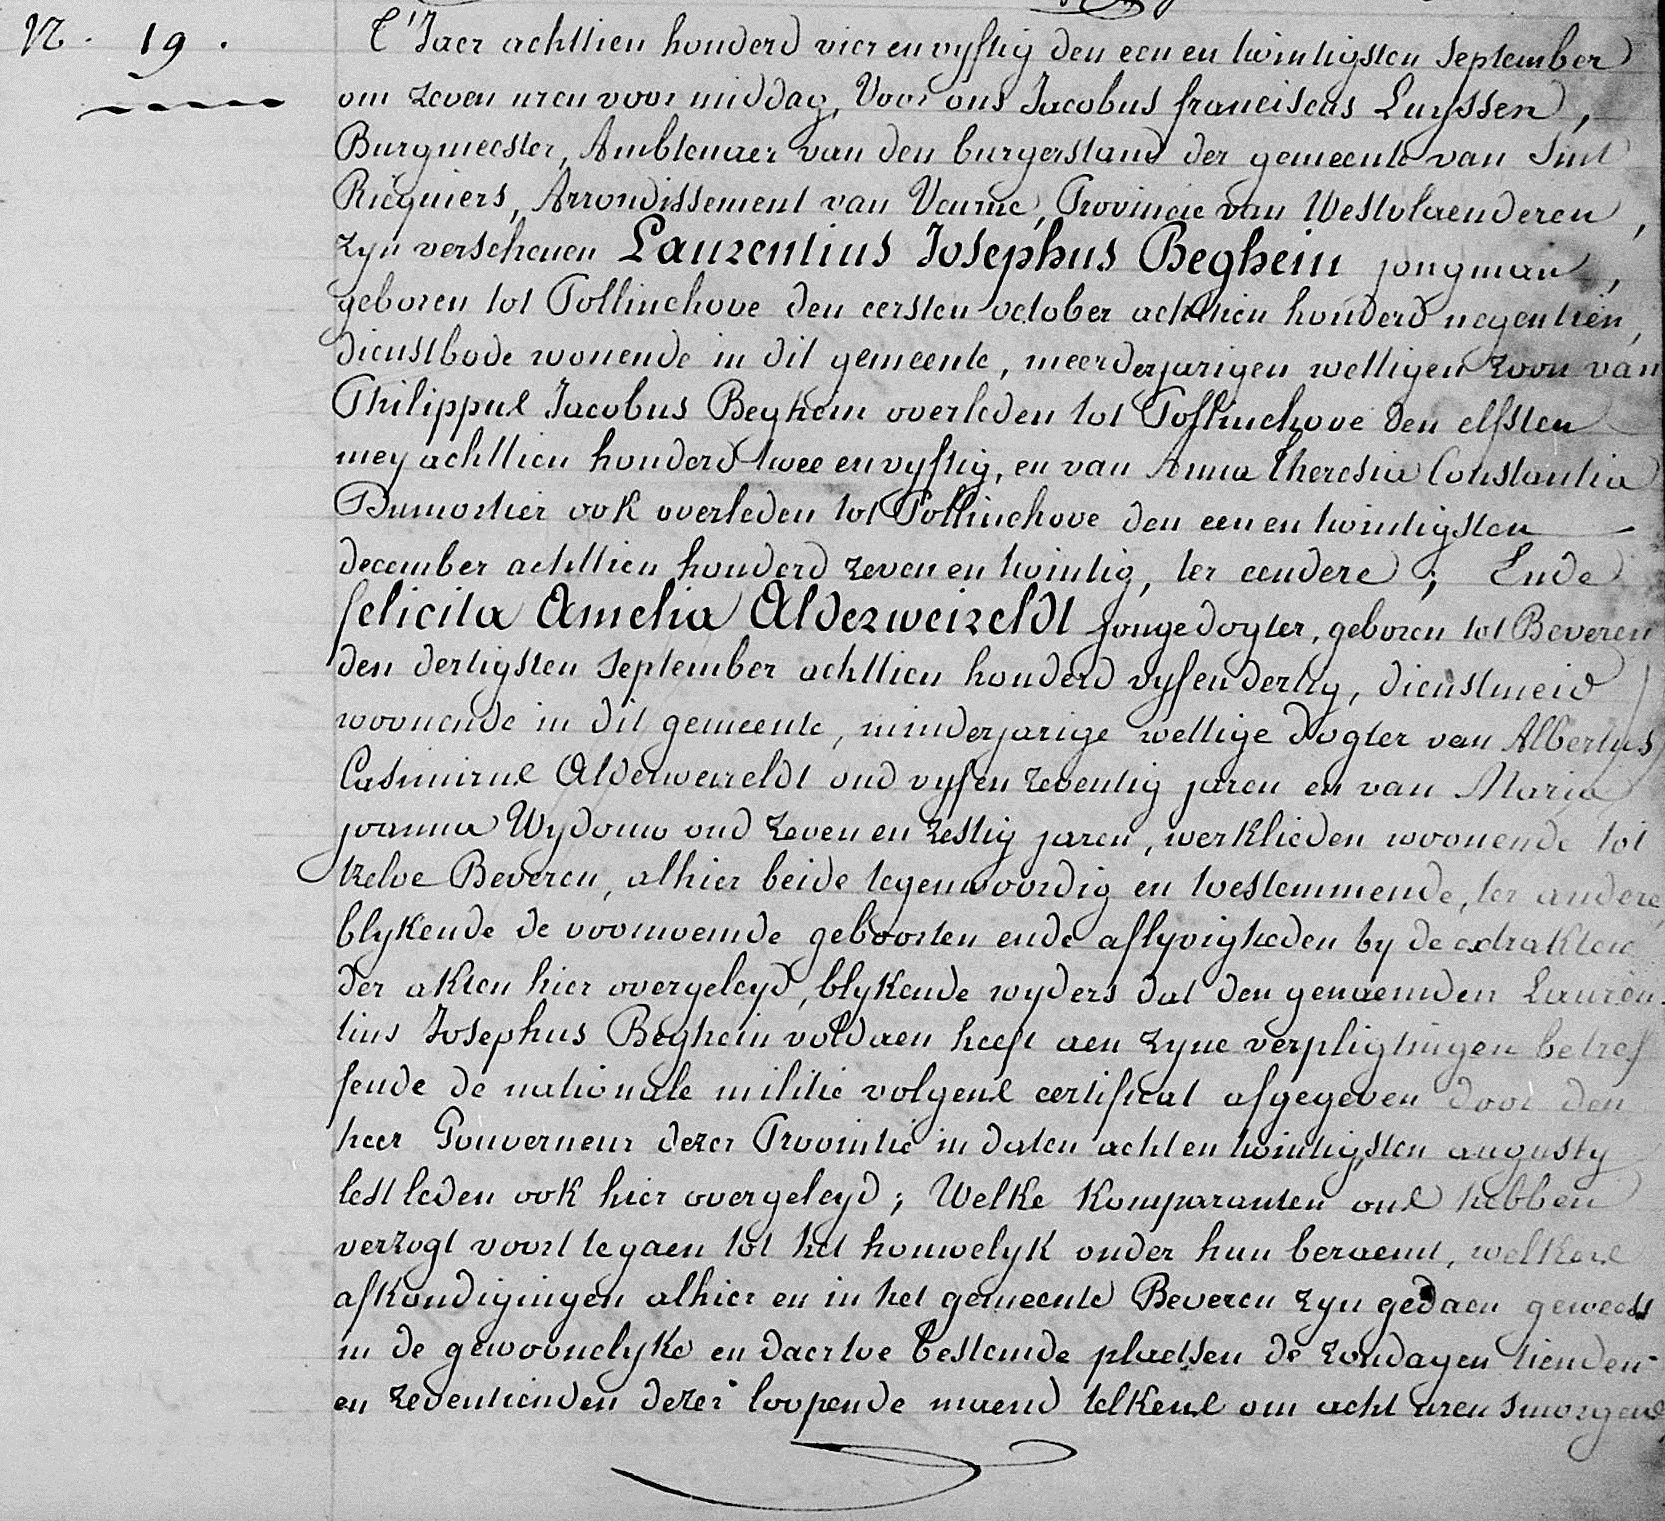 N. 19.
T'Jaer achttien honderd vier en vyftig den een en twintigsten september
om zeven uren voor middag, Voor ons Jacobus franciscus Luyssen,
Burgmeester, Ambtenaer van den burgerstand der gemeente van Sint
Ricquiers, Arrondissement van Veurne, Provincie van Westvlaenderen,
zyn verschenen Laurentius Josephus Beghein jongman,
geboren tot Pollinchove den eersten october achttien honderd negentien,
dienstbode wonende in dit gemeente, meerderjarigen wettigen zoon van
Philippus Jacobus Beghein overleden tot Pollinchove den elfsten
mey achttien honderd twee en vyftig, en van Anna Theresia Constantia
Dumortier ook overleden tot Pollinchove den een en twintigsten
december achttien honderd zeven en twintig, ter eendere; Ende
felicita Amelia Alderweireldt jongedogter, geboren tot Beveren
den dertigsten september achttien honderd vyfendertig, dienstmeid
woonende in dit gemeente, minderjarige wettige dogter van Albertus
Casimirus Alderweireldt oud vyfen zeventig jaren en van Maria
joanna Wydouw oud zeven en zestig jaren, werklieden woonende tot
tzelve Beveren, alhier beide tegenwoordig en toestemmende, ter andere,
blykende de voornoemde geboorten ende aflyvigheden by de extrakten
der akten hier overgeleyd, blykende wyders dat den genaemden Lauren-
tius Josephus Beghein voldaen heeft aen zyne verpligtingen betref
fende de nationale militie volgens certificat afgegeven door den
heer Gouverneur dezer Provintie in daten acht en twintigsten augusty
lest leden ook hier overgeleyd; Welke Komparanten ons hebben
verzogt voort te gaen tot het houwelyk onder hun beraemt, welkers
afkondigingen alhier en in het gemeente Beveren zyn gedaen geweest
in de gewoonelyke en daertoe bestemde plaetsen de zondagen tienden
en zeventienden dezer loopende maend telkens om acht uren smorgens